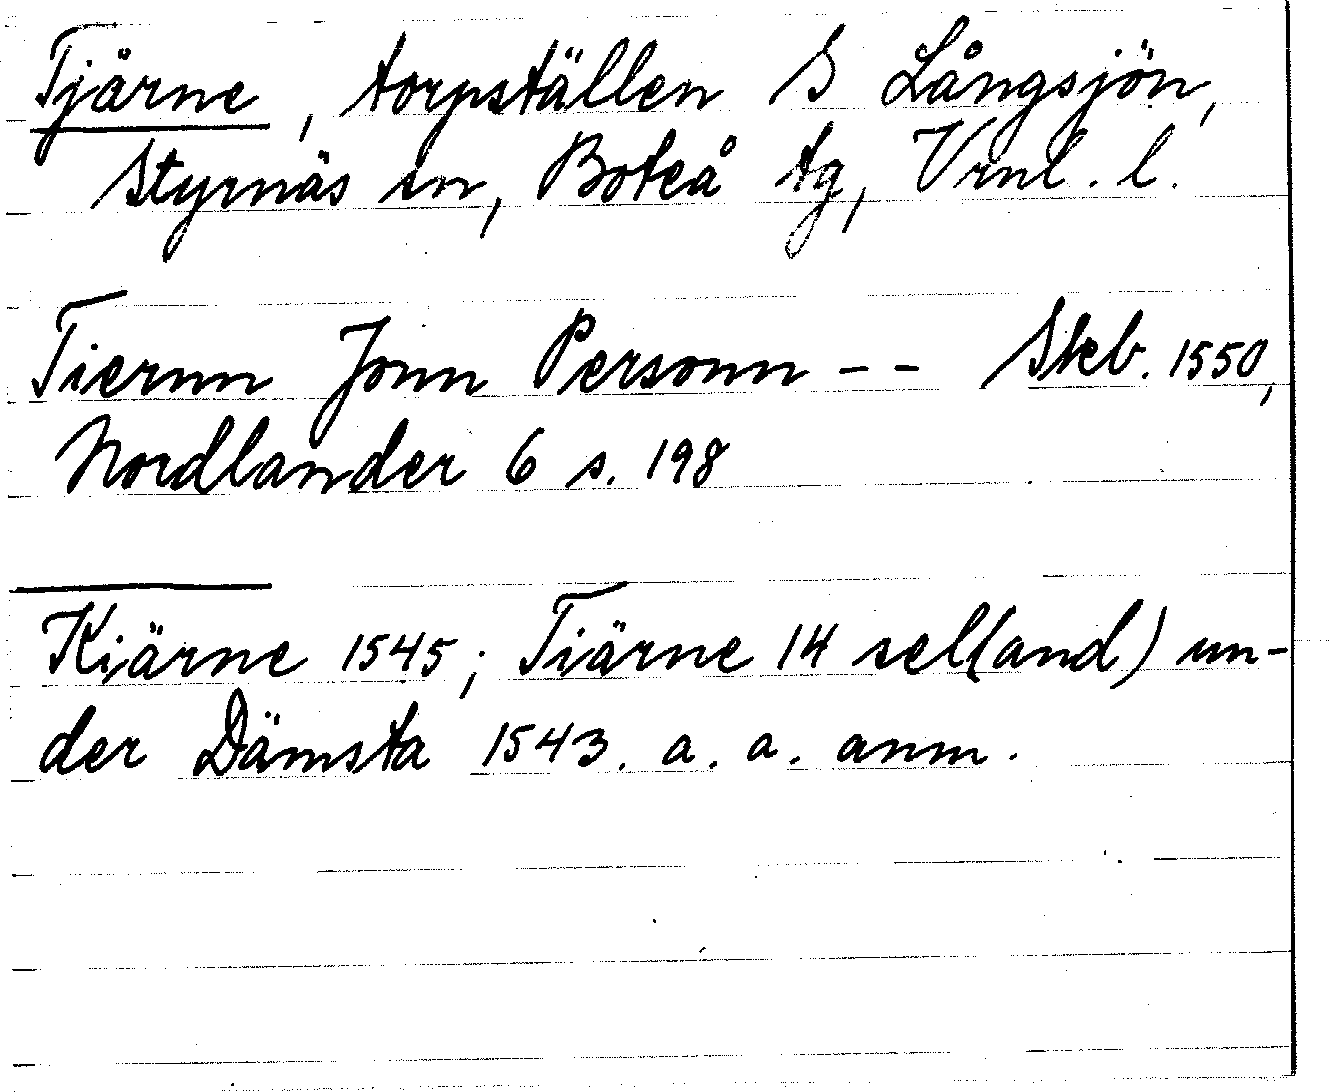 Tjärne, torpställen S Långsjön,
Styrnäs sn, Boteå tg, Vrnl. l.
Tiernn Jonn Personn -- Skb. 1550,
Nordlander 6 s. 198
Kiärne 1545; Tiärne 14 sel(and) un-
der Dämsta 1543. a. a. anm.